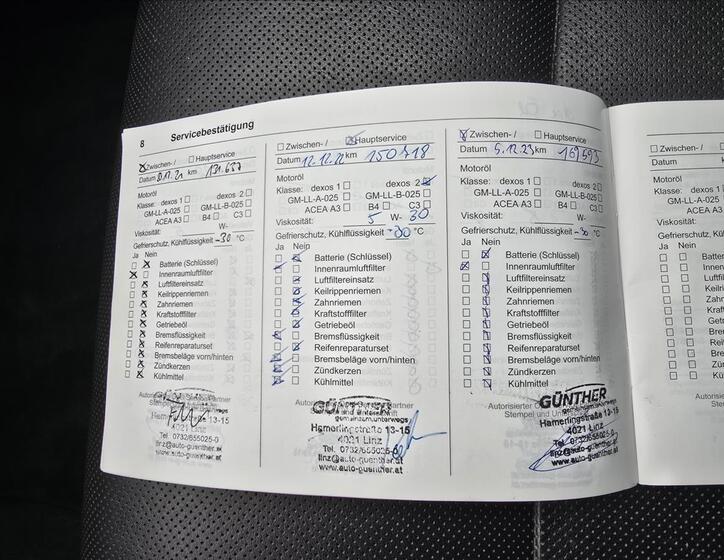 8 Servicebestätigung
Zwischen-/ Hauptservice
Datum km 131.637
Motoröl
Klasse: dexos 1 dexos 2
GM-LL-A-025 GM-LL-B-025
ACEA A3 B4 C3
Viskosität: W-
Gefrierschutz, Kühlflüssigkeit -30 °C
Ja Nein
Batterie (Schlüssel)
Innenraumluftfilter
Luftfiltereinsatz
Keilrippenriemen
Zahnriemen
Kraftstofffilter
Getriebeöl
Bremsflüssigkeit
Reifenreparaturset
Bremsbeläge vorn/hinten
Zündkerzen
Kühlmittel
gemeinsam.unterwegs
Hamerlingstraße 13-15
4021 Linz
Tel. 0732/655025-0
linz@auto-guenther.at
www.auto-guenther.at
Zwischen-/ Hauptservice
Datum 12.12.22 km 150418
Motoröl
Klasse: dexos 1 dexos 2
GM-LL-A-025 GM-LL-B-025
ACEA A3 B4 C3
Viskosität: 5 W- 30
Gefrierschutz, Kühlflüssigkeit -30 °C
Ja Nein
Batterie (Schlüssel)
Innenraumluftfilter
Luftfiltereinsatz
Keilrippenriemen
Zahnriemen
Kraftstofffilter
Getriebeöl
Bremsflüssigkeit
Reifenreparaturset
Bremsbeläge vorn/hinten
Zündkerzen
Kühlmittel
GÜNTHER
gemeinsam.unterwegs
Hamerlingstraße 13-15
4021 Linz
Tel. 0732/655025-0
linz@auto-guenther.at
www.auto-guenther.at
Zwischen-/ Hauptservice
Datum 5.12.23 km 169593
Motoröl
Klasse: dexos 1 dexos 2
GM-LL-A-025 GM-LL-B-025
ACEA A3 B4 C3
Viskosität: W-
Gefrierschutz, Kühlflüssigkeit -30 °C
Ja Nein
Batterie (Schlüssel)
Innenraumluftfilter
Luftfiltereinsatz
Keilrippenriemen
Zahnriemen
Kraftstofffilter
Getriebeöl
Bremsflüssigkeit
Reifenreparaturset
Bremsbeläge vorn/hinten
Zündkerzen
Kühlmittel
Autorisierter
Stempel und
GÜNTHER
gemeinsam.unterwegs
Hamerlingstraße 13-15
4021 Linz
Tel. 0732/655025-0
linz@auto-guenther.at
www.auto-guenther.at
Zwischen-/
Datum
Motoröl
Klasse:
GM-LL-A
ACEA
Viskosität:
Gefrierschutz
Ja Nein
Autorisier
Ste